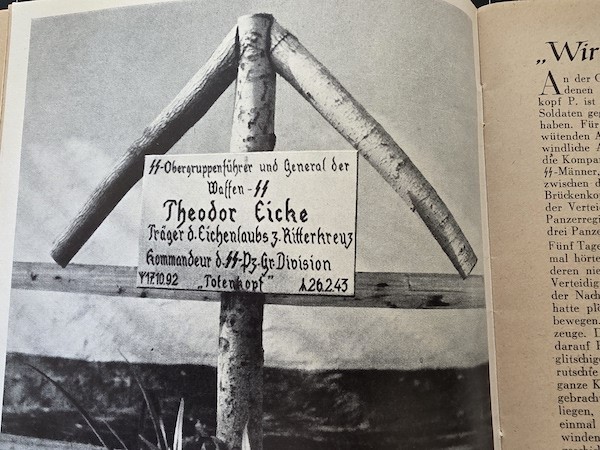 SS-Obergruppenführer und General der
Waffen-SS
Theodor Eicke
Träger d. Eichenlaubs z. Ritterkreuz
Kommandeur d. SS-Pz.Gr.Division
ᛉ17.10.92 „Totenkopf" ᛦ26.2.43
„Wir
An der G
denen
kopf P. ist
Soldaten geg
haben. Für
wütenden A
windliche A
die Kompan
SS-Männer,
zwischen d
Brückenko
der Vertei
Panzerregi
drei Panze
Fünf Tage
mal hörte
deren nie
Verteidig
der Nach
hatte plö
bewegen.
zeuge. D
darauf
glitschige
rutschte
ganze K
gebrach
liegen,
einmal
winden